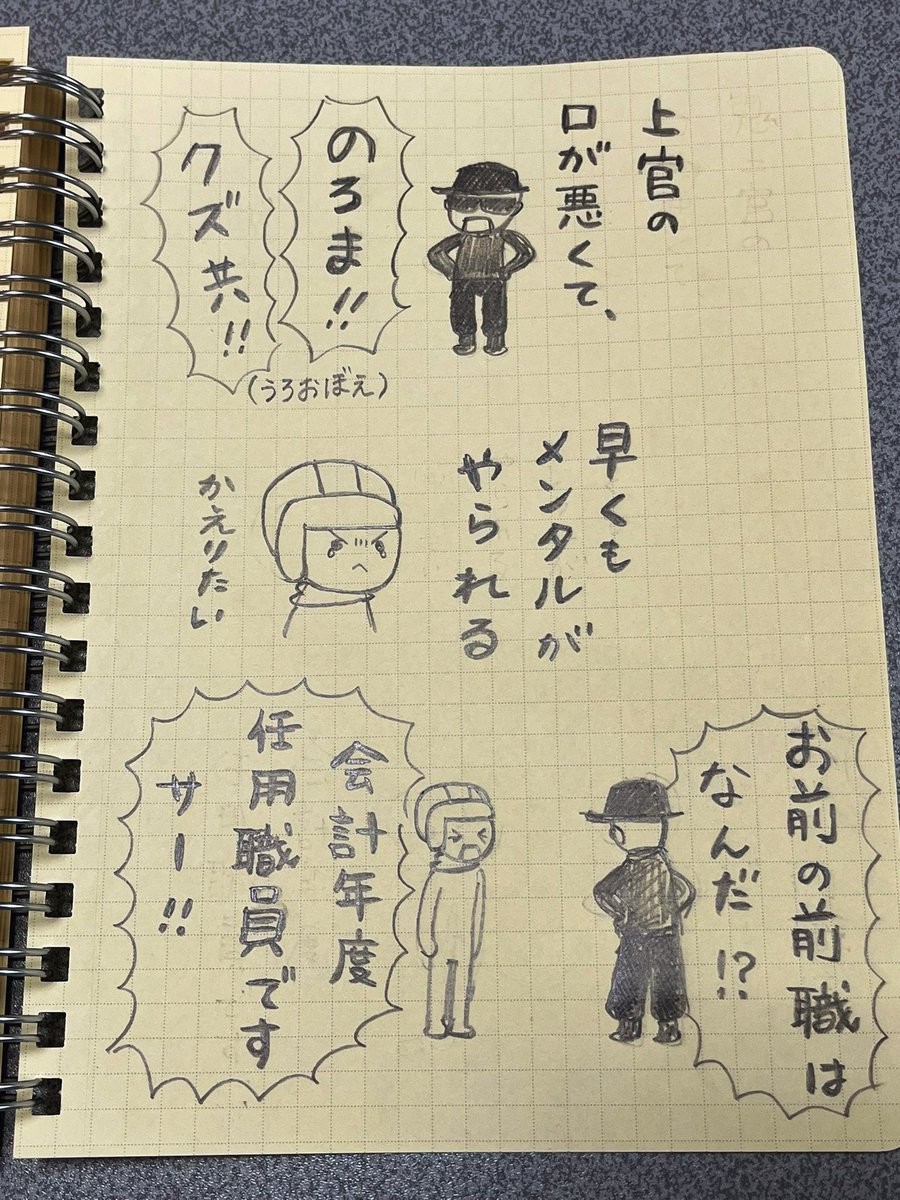 上官の
口が悪くて、
のろま!!
クズ共!!
(うろおぼえ)
早くも
メンタルが
やられる
かえりたい
お前の前職は
なんだ!?
会計年度
任用職員です
サー!!